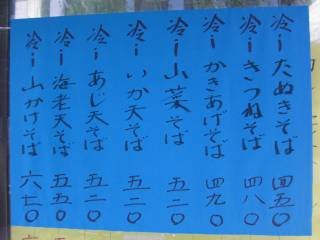 冷ーたぬきそば 四五〇
冷ーきつねそば 四八〇
冷ーかきあげそば 四九〇
冷ー山菜そば 五二〇
冷ーいか天そば 五二〇
冷ーあじ天そば 五二〇
冷ー海老天そば 五五〇
冷ー山かけそば 六七〇